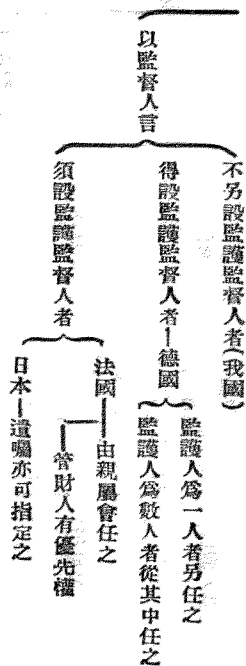 以監督人言
不另設監護監督人者(我國)
得設監護監督人者—德國
監護人爲一人者另任之
監護人爲數人者從其中任之
須設監護監督人者
法國—由親屬會任之
管財人有優先權
日本—遺囑亦可指定之